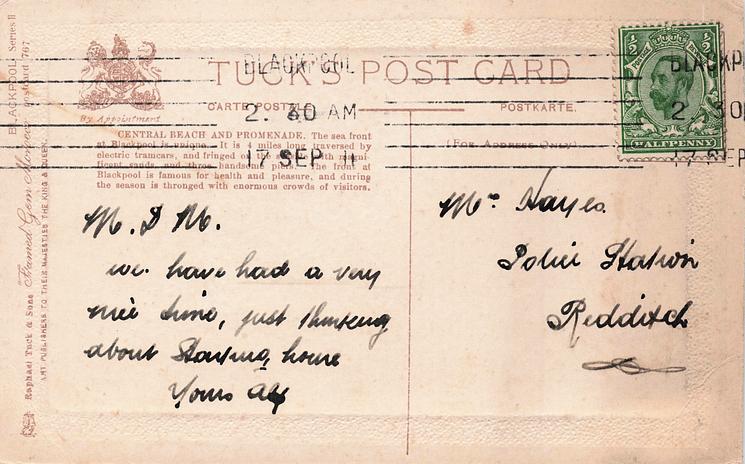 TUCK'S POST CARD
CARTE POSTALE
POSTKARTE.
By Appointment
(FOR ADDRESS ONLY)
CENTRAL BEACH AND PROMENADE. The sea front
at Blackpool is unique. It is 4 miles long traversed by
electric tramcars, and fringed
sands, and three handsome piers. The front at
Blackpool is famous for health and pleasure, and during
the season is thronged with enormous crowds of visitors.
BLACKPOOL
2. 30 AM
17 SEP 11
BLACKP
2 30
17 SEP
½ ½
HALFPENNY
M. D M.
we have had a very
nice time, just thinking
about Starting home
Yours Alf
Mr Hayes
Police Station
Redditch
BLACKPOOL Series II
Postcard 767
Raphael Tuck & Sons Framed Gem
ART PUBLISHERS TO THEIR MAJESTIES THE KING & QUEEN.